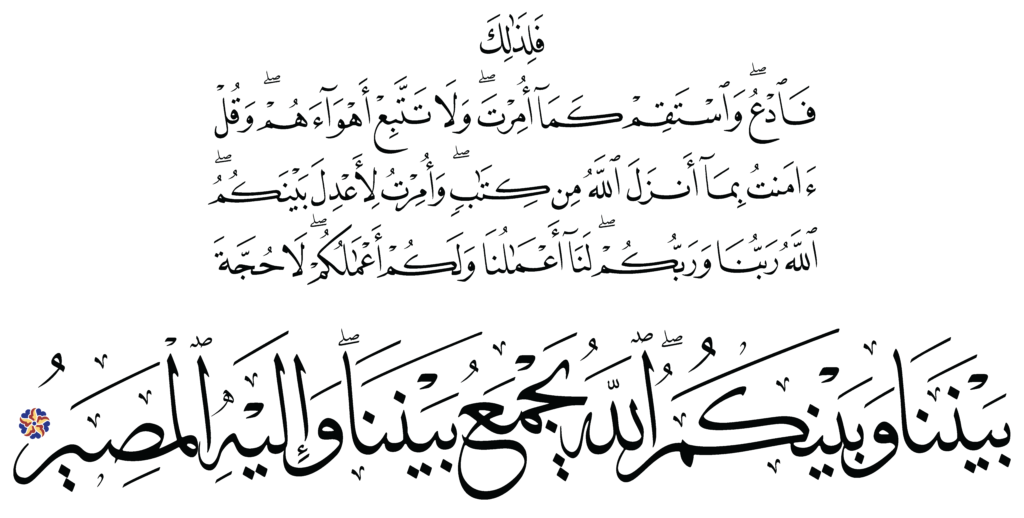 فَلِذَٰلِكَ
فَٱدْعُ ۖ وَٱسْتَقِمْ كَمَآ أُمِرْتَ ۖ وَلَا تَتَّبِعْ أَهْوَآءَهُمْ ۖ وَقُلْ
ءَامَنتُ بِمَآ أَنزَلَ ٱللَّهُ مِن كِتَٰبٍ ۖ وَأُمِرْتُ لِأَعْدِلَ بَيْنَكُمُ ۖ
ٱللَّهُ رَبُّنَا وَرَبُّكُمْ ۖ لَنَآ أَعْمَٰلُنَا وَلَكُمْ أَعْمَٰلُكُمْ ۖ لَا حُجَّةَ
بَيْنَنَا وَبَيْنَكُمُ ۖ ٱللَّهُ يَجْمَعُ بَيْنَنَا ۖ وَإِلَيْهِ ٱلْمَصِيرُ